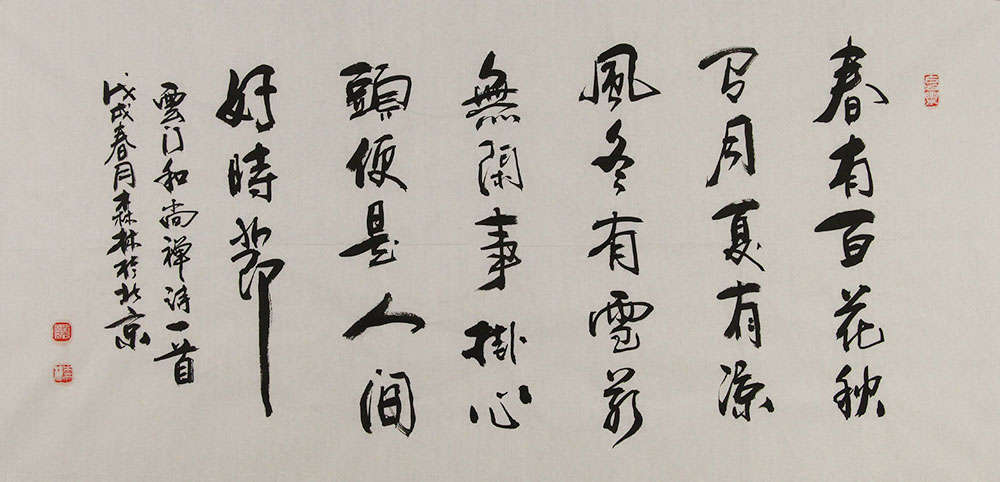 春有百花秋
有月夏有凉
風冬有雪若
無閑事掛心
頭便是人間
好時節
雲门和尚禅诗一首
戊戌春月森林於北京